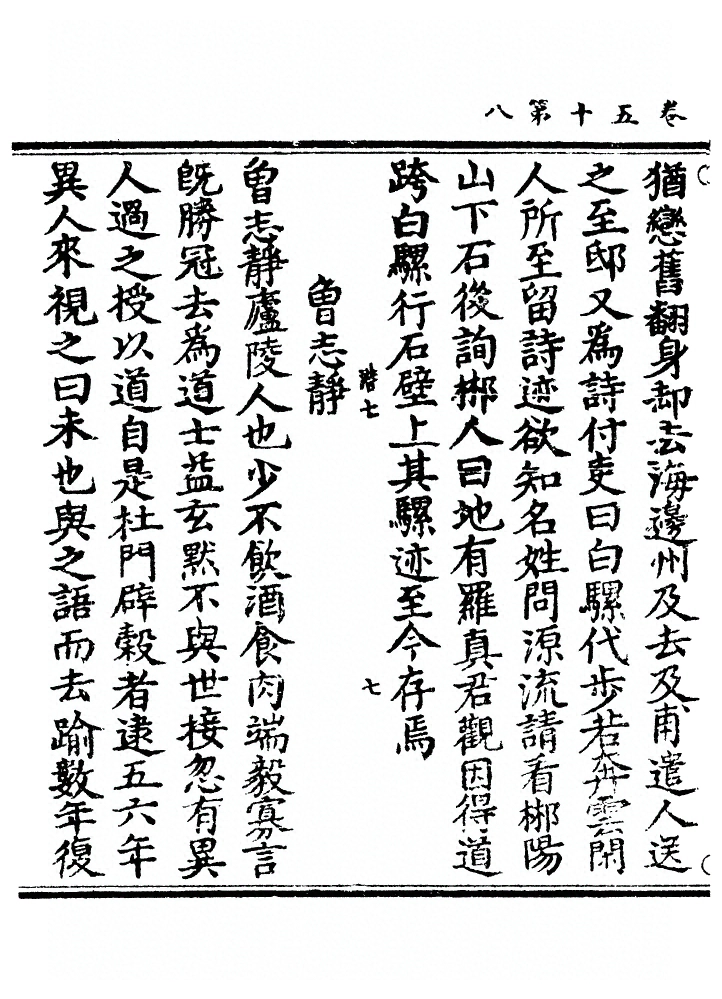 卷五十第八
猶戀舊翻身却去海邊州及去及甫遣人送
之至邸又爲詩付吏曰白騾代步若奔雲閑
人所至留詩迹欲知名姓問源流請看郴陽
山下石後詢郴人曰地有羅真君觀因得道
跨白騾行石壁上其騾迹至今存焉
潛七
七
曾志靜
曾志靜廬陵人也少不飲酒食肉端毅寡言
既勝冠去爲道士益玄默不與世接忽有異
人過之授以道自是杜門辟穀者逮五六年
異人來視之曰未也與之語而去踰數年復